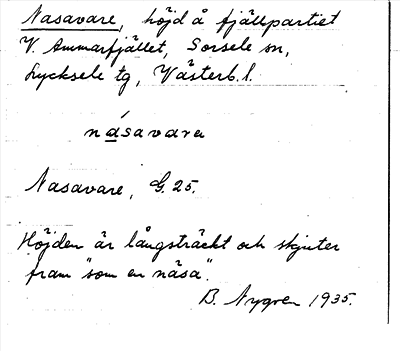 Nasavare, höjd å fjällpartiet
V. Ammarfjället, Sorsele sn,
Lycksele tg, Västerb. l.
násavarα
Nasavare, G. 25.
Höjden är långsträckt och skjuter
fram "som en näsa".
B. Nygren 1935.